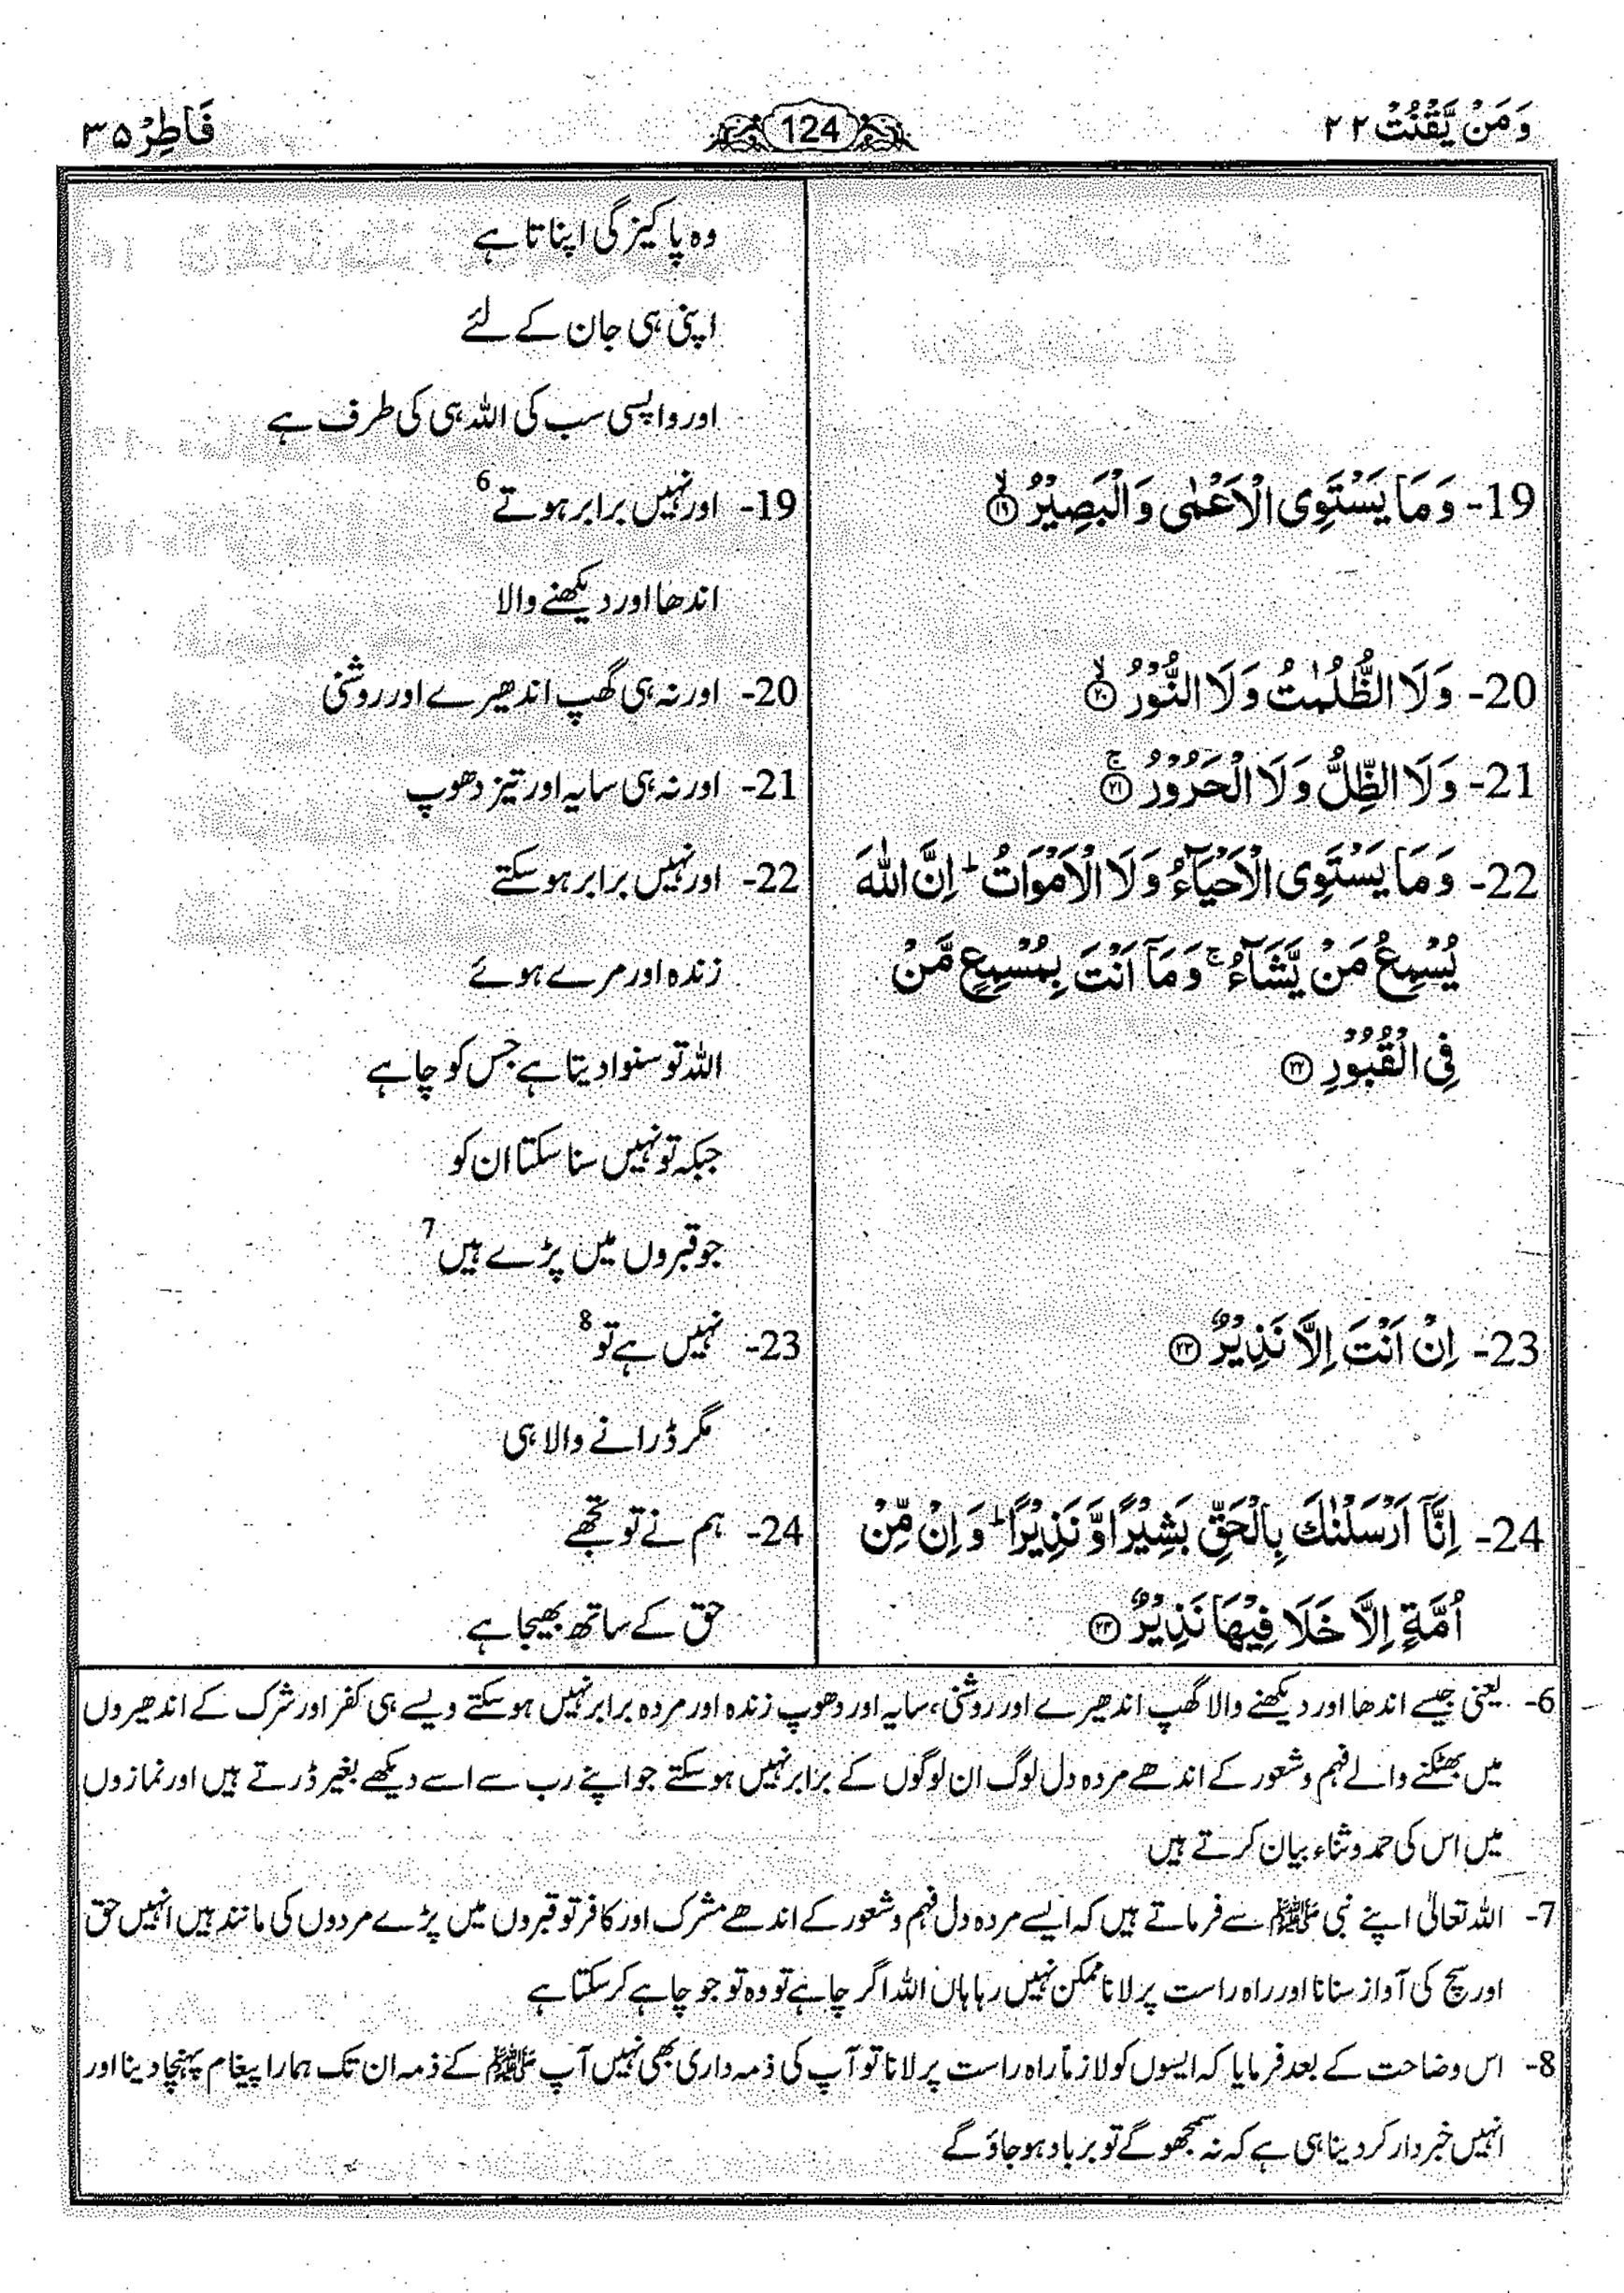 وَمَنْ یَّقْنُتْ ۲۲
124
فَاطِرْ ۳۵
وہ پاکیزگی اپناتا ہے
اپنی ہی جان کے لئے
اور واپسی سب کی اللہ ہی کی طرف ہے
19- وَمَا یَسْتَوِی الْاَعْمٰی وَالْبَصِیْرُ ۙ﴿۱۹﴾
19- اور نہیں برابر ہوتے 6
اندھا اور دیکھنے والا
20- وَلَا الظُّلُمٰتُ وَلَا النُّوْرُ ۙ﴿۲۰﴾
20- اور نہ ہی گھپ اندھیرے اور روشنی
21- وَلَا الظِّلُّ وَلَا الْحَرُوْرُ ۚ﴿۲۱﴾
21- اور نہ ہی سایہ اور تیز دھوپ
22- وَمَا یَسْتَوِی الْاَحْیَآءُ وَلَا الْاَمْوَاتُ ؕ اِنَّ اللّٰهَ
یُسْمِعُ مَنْ یَّشَآءُ ۚ وَمَآ اَنْتَ بِمُسْمِعٍ مَّنْ
فِی الْقُبُوْرِ ﴿۲۲﴾
22- اور نہیں برابر ہو سکتے
زندہ اور مرے ہوئے
اللہ تو سنوا دیتا ہے جس کو چاہے
جبکہ تو نہیں سنا سکتا ان کو
جو قبروں میں پڑے ہیں 7
23- اِنْ اَنْتَ اِلَّا نَذِیْرٌ ﴿۲۳﴾
23- نہیں ہے تو 8
مگر ڈرانے والا ہی
24- اِنَّآ اَرْسَلْنٰكَ بِالْحَقِّ بَشِیْرًا وَّنَذِیْرًا ؕ وَاِنْ مِّنْ
اُمَّةٍ اِلَّا خَلَا فِیْهَا نَذِیْرٌ ﴿۲۴﴾
24- ہم نے تو تجھے
حق کے ساتھ بھیجا ہے
6- یعنی جیسے اندھا اور دیکھنے والا گھپ اندھیرے اور روشنی، سایہ اور دھوپ زندہ اور مردہ برابر نہیں ہو سکتے ویسے ہی کفر اور شرک کے اندھیروں
میں بھٹکنے والے فہم و شعور کے اندھے مردہ دل لوگ ان لوگوں کے برابر نہیں ہو سکتے جو اپنے رب سے اسے دیکھے بغیر ڈرتے ہیں اور نمازوں
میں اس کی حمد و ثناء بیان کرتے ہیں
7- اللہ تعالیٰ اپنے نبی ﷺ سے فرماتے ہیں کہ ایسے مردہ دل فہم و شعور کے اندھے مشرک اور کافر تو قبروں میں پڑے مردوں کی مانند ہیں انہیں حق
اور سچ کی آواز سنانا اور راہ راست پر لانا ممکن نہیں رہا ہاں اللہ اگر چاہے تو وہ تو جو چاہے کر سکتا ہے
8- اس وضاحت کے بعد فرمایا کہ ایسوں کو لازماً راہ راست پر لانا تو آپ کی ذمہ داری بھی نہیں آپ ﷺ کے ذمہ ان تک ہمارا پیغام پہنچا دینا اور
انہیں خبردار کر دینا ہی ہے کہ نہ سمجھو گے تو برباد ہو جاؤ گے